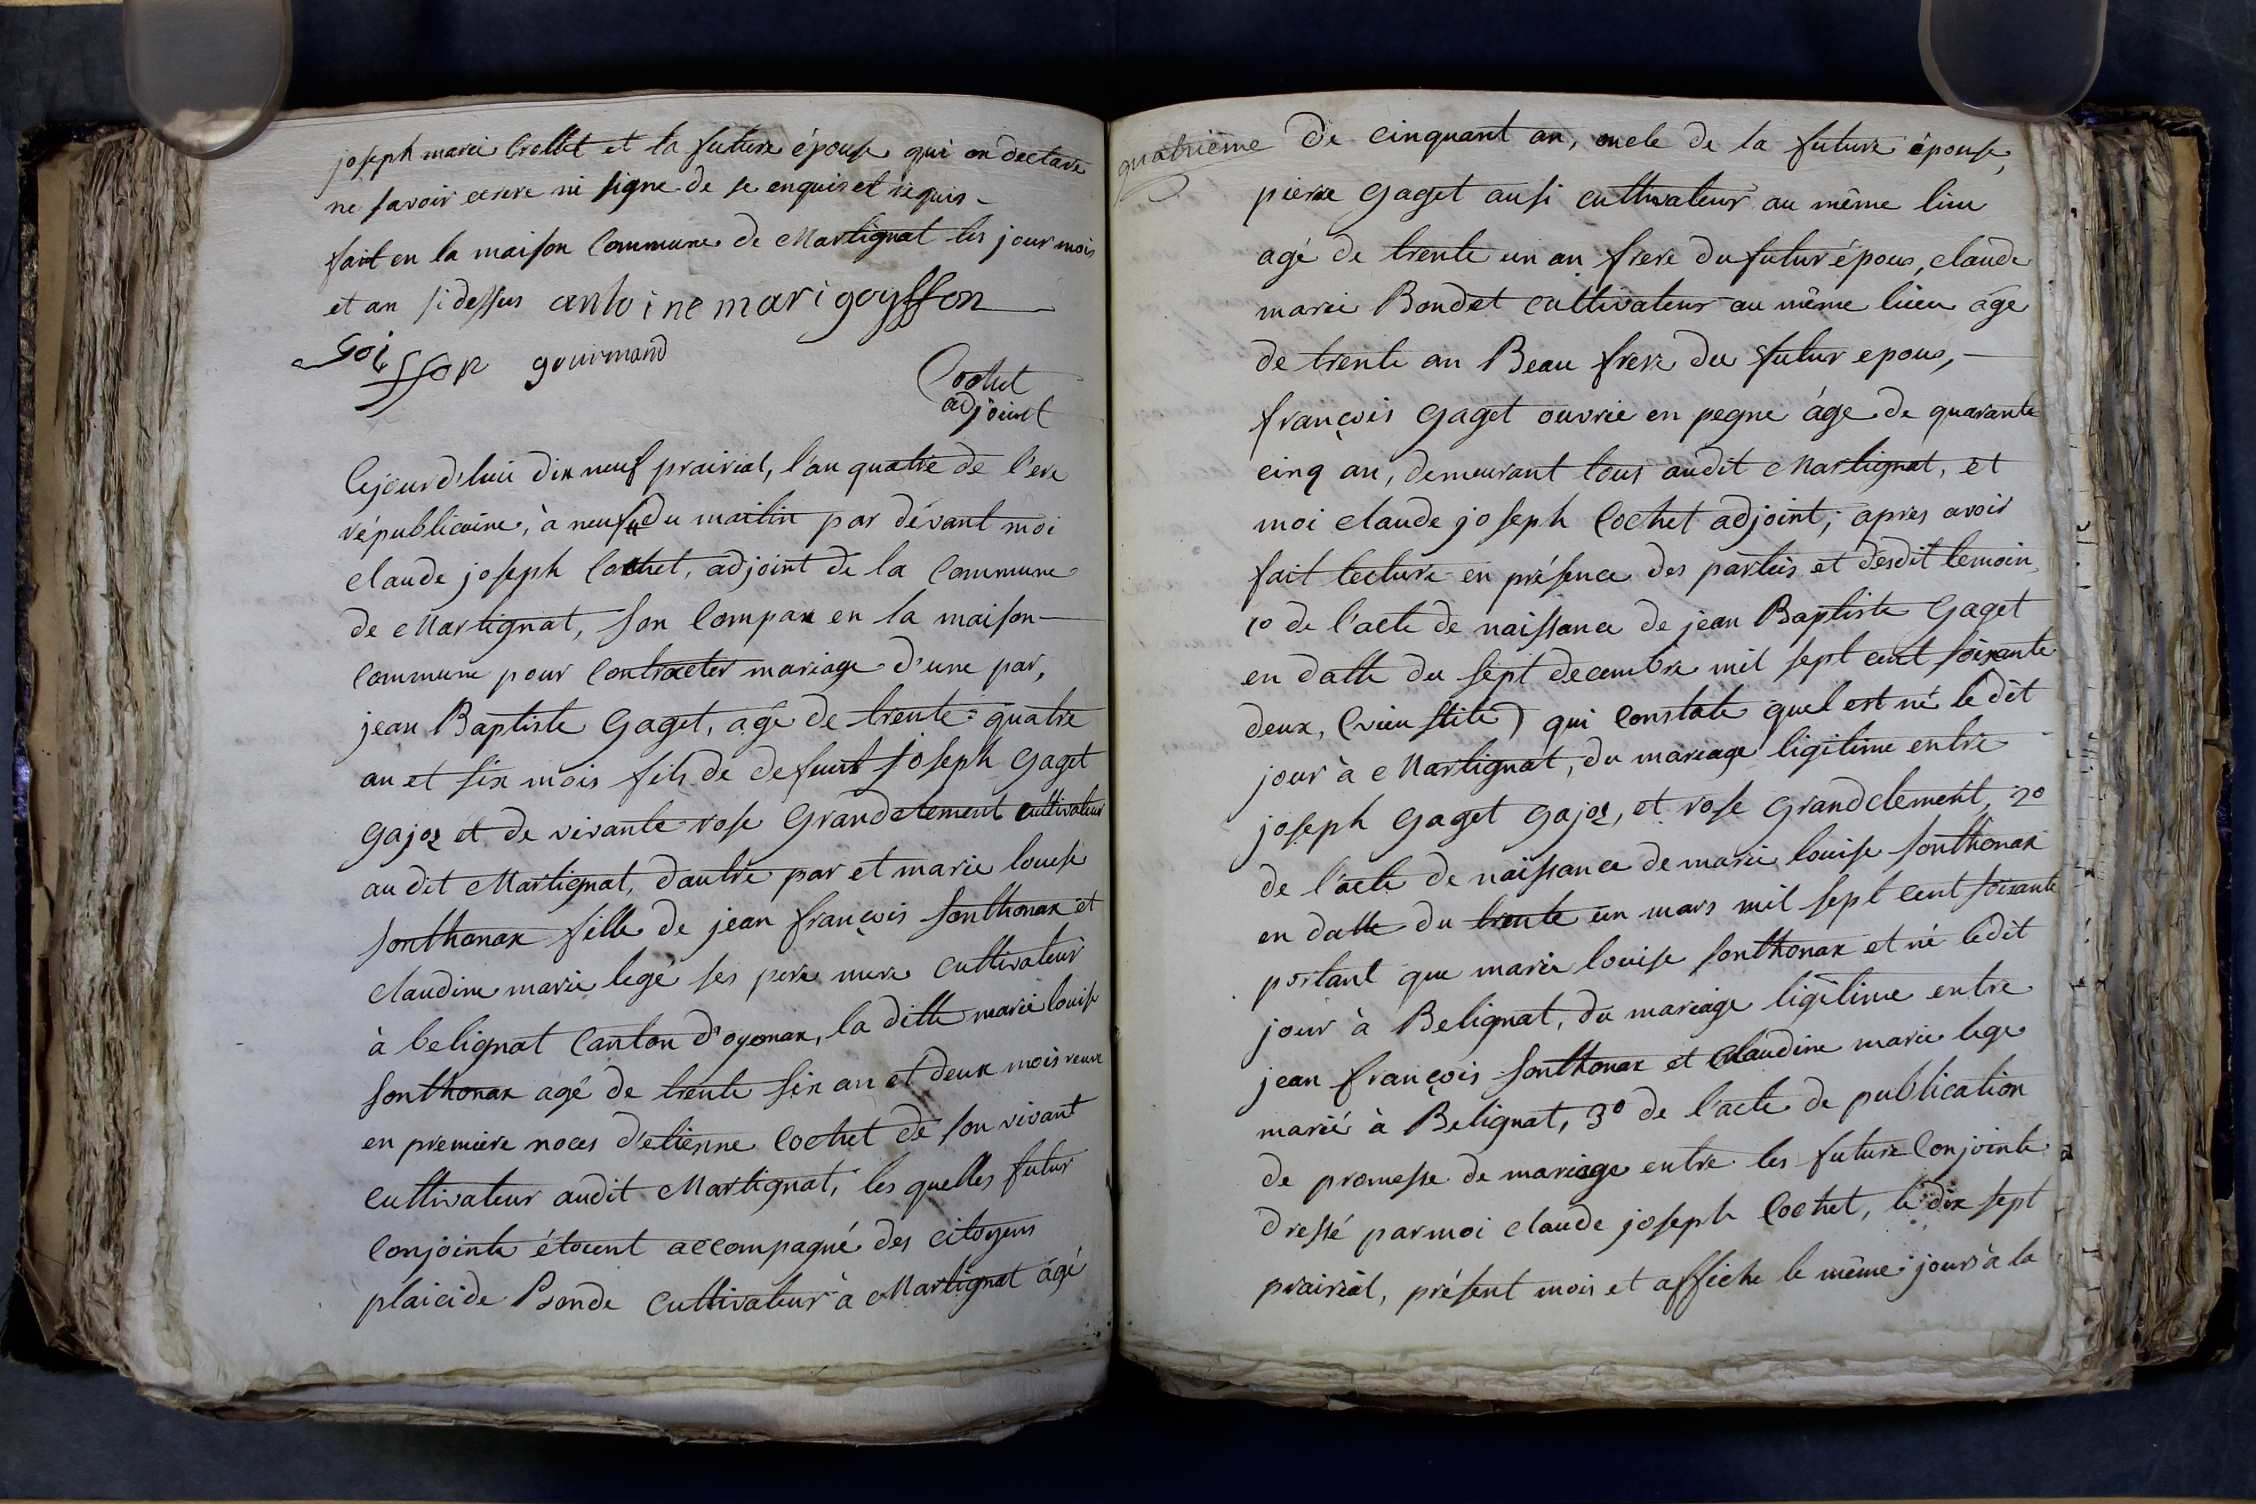 joseph marie Crollet et la future épouse qui on declaré
ne savoir ecrire ni signe de se enquis et requis
fait en la maison commune de Martignat les jour mois
et an sidessus antoine mari goyffon
Goiffon gourmand
Cochet
adjoint
Cejourd'hui dix neuf prairial, l'an quatre de l'ere
républicaine, à neuf du maitin par dévant moi
claude joseph Cochet, adjoint de la Commune
de Martignat, son Compax en la maison
Commune pour Contracter mariage d'une par,
jean Baptiste Gaget, agé de trente quatre
an et six mois fils de defunt joseph Gaget
Gajoz et de vivante rose Grandclement cultivateur
au dit Martignat, d'autre par et marie louise
sonthonax fille de jean françois sonthonax et
claudine marie legé ses pere mere cultivateur
à belignat Canton d'oyonax, la ditte marie louise
sonthonax agé de trente six an et deux mois veuve
en premiere noces d'etienne Cochet de son vivant
cultivateur audit Martignat, les quelles futur
Conjointe étoient accompagné des citoyens
plaicide Bonde cultivateur à Martignat âgé
quatrieme
de cinquant an, oncle de la future épouse,
pierre Gaget ausi cultivateur au même lieu
agé de trente un an frere du futur épous, claude
marie Bondet cultivateur au même lieu âge
de trente an Beau frere du futur epous,
françois Gaget ouvrie en pegne âge de quarante
cinq an, demeurant tous audit Martignat, et
moi claude joseph Cochet adjoint, apres avoir
fait lecture en présence des parties et desdit temoin,
1º de l'acte de naissance de jean Baptiste Gaget
en datte du sept decembre mil sept cent soixante
deux, (vieu stile) qui Constate quel est né le dit
jour à Martignat, du mariage ligitime entre
joseph Gaget Gajoz, et rose Grandclement, 2º
de l'acte de naissance de marie louise sonthonax
en datte du trente un mars mil sept cent soixante
portant que marie louise sonthonax et né ledit
jour à Belignat, du mariage ligitime entre
jean françois sonthonax et claudine marie lege
marié à Belignat, 3º de l'acte de publication
de promesse de mariage entre les future Conjointe
dressé par moi claude joseph Cochet, le dix sept
prairial, présent mois et affiche le même jour à la